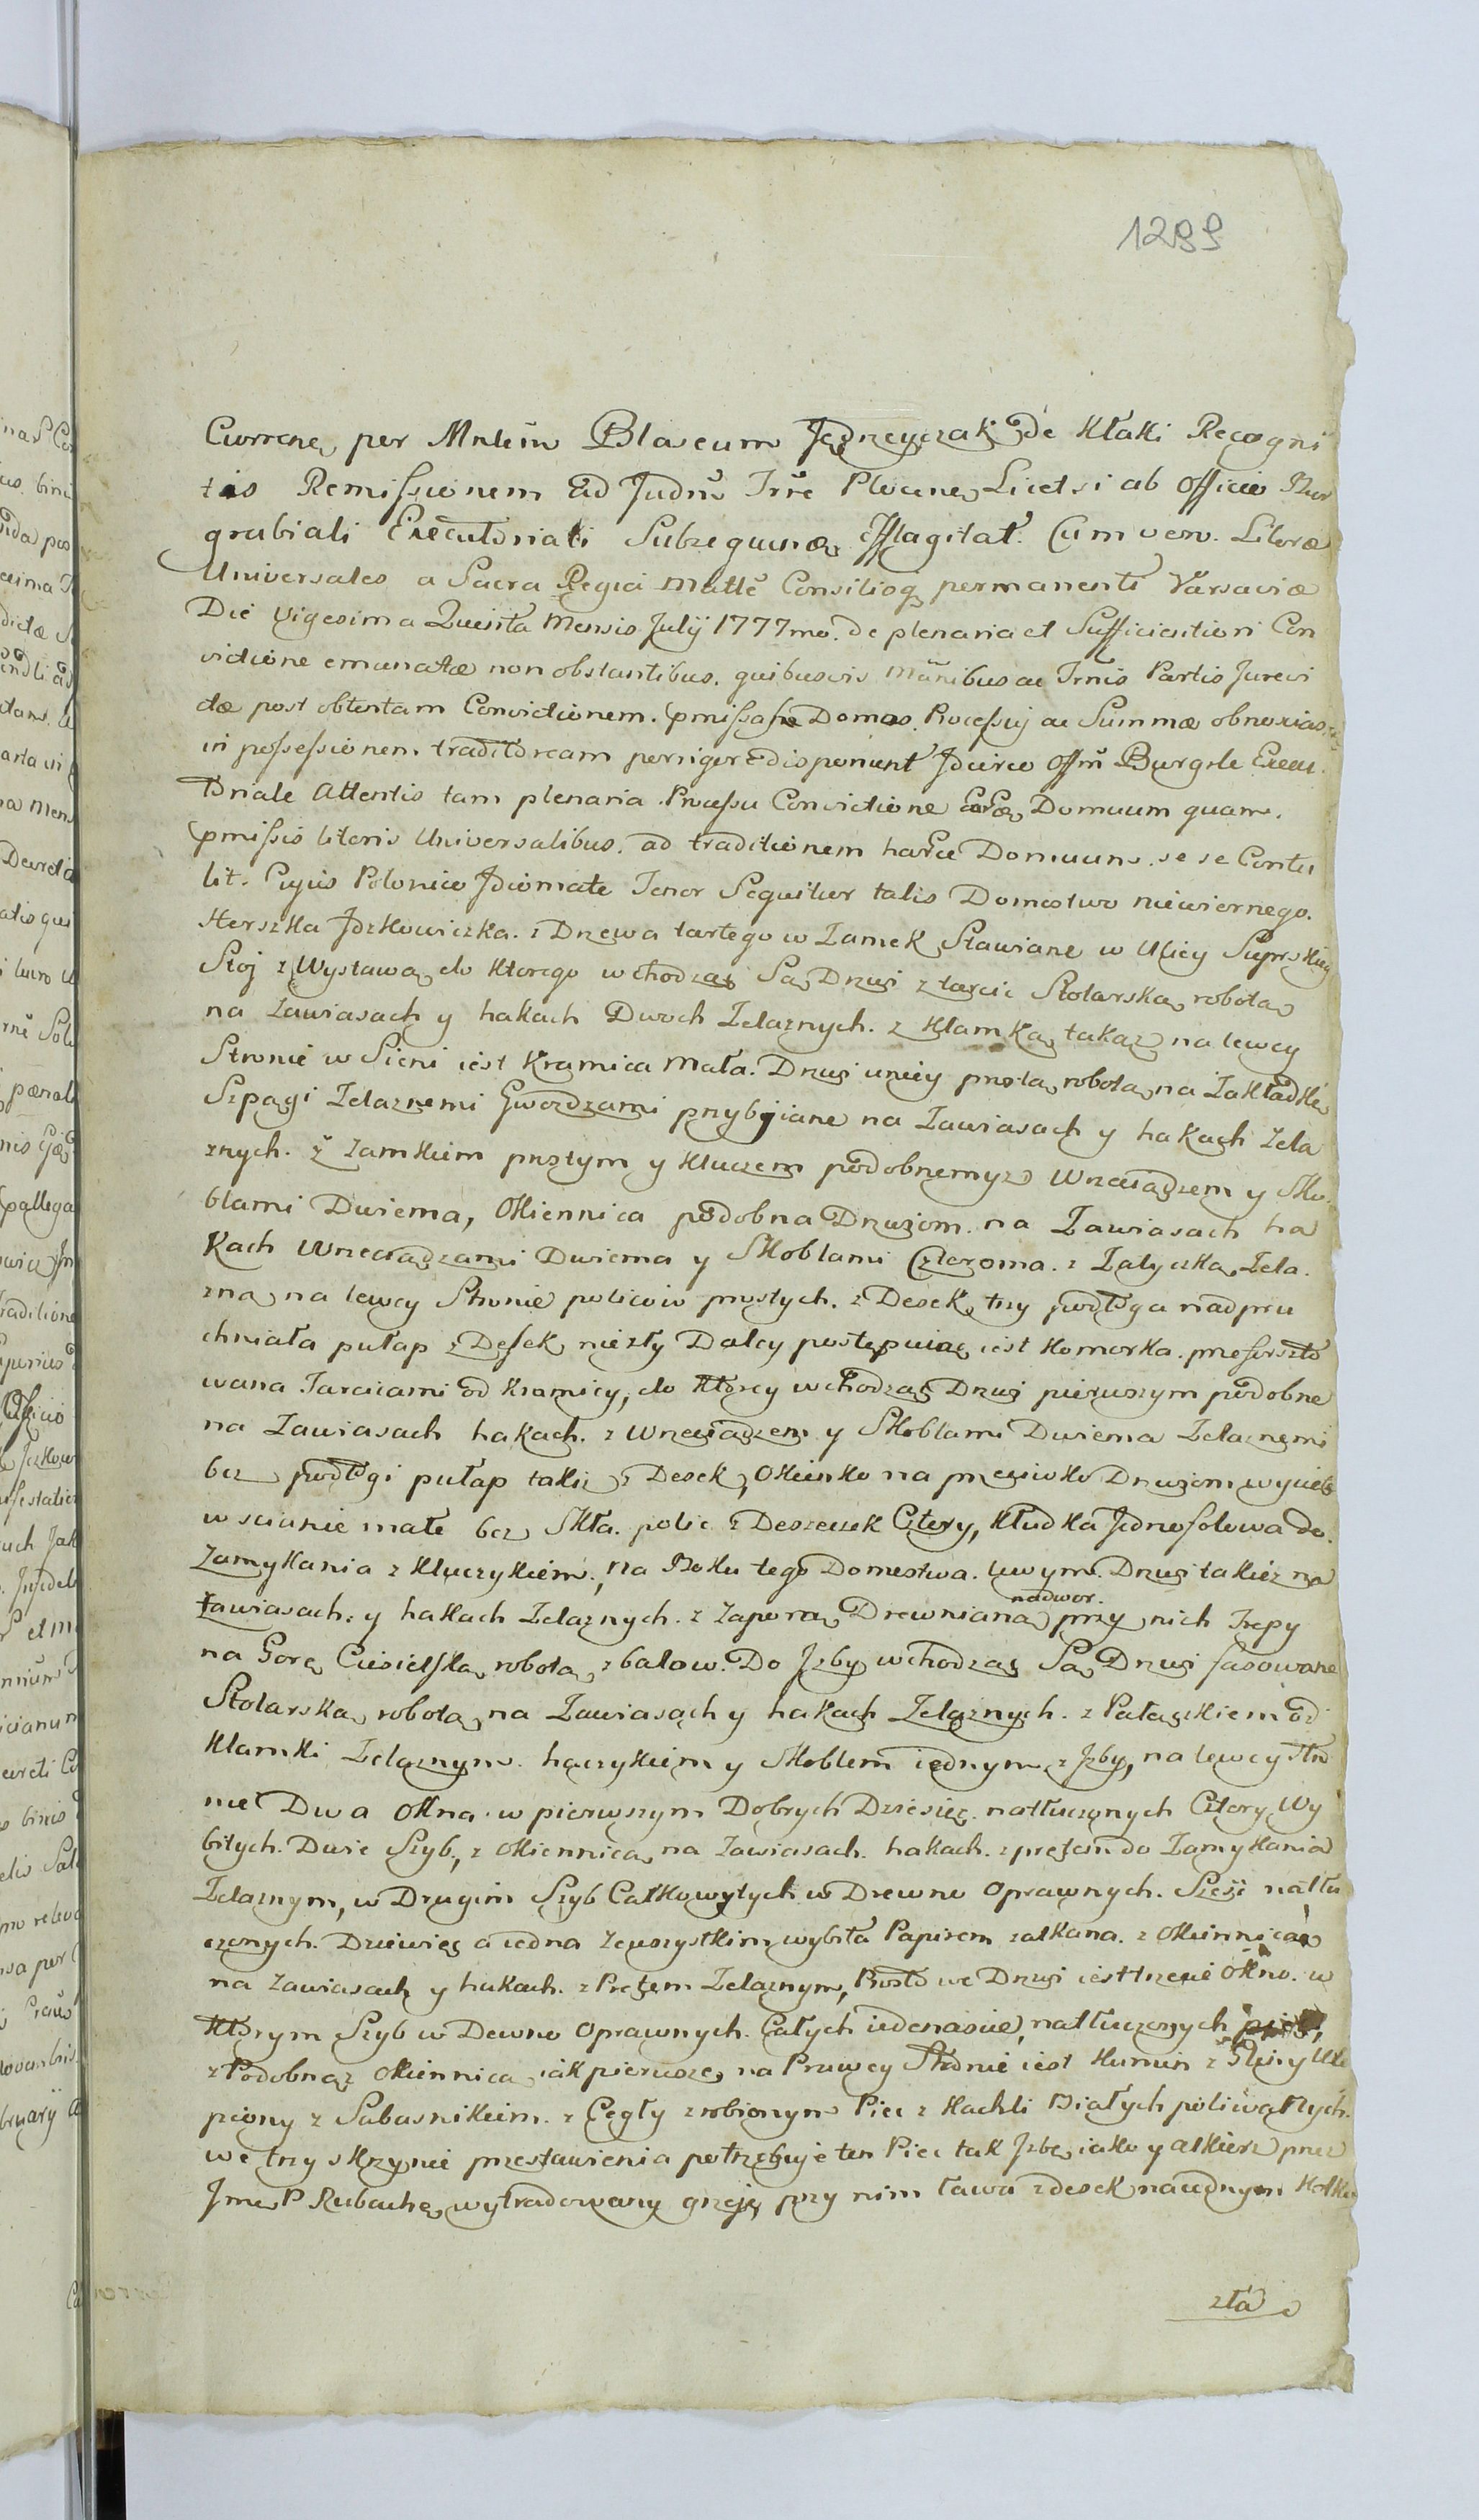 1299
Currene per Mnlem Blaseum Jędrzeyczak de Kłaki Recogni
tas Remissionem Ad Judm Trre Plocene Licet si ab Officio Bur
grabiali Executoriali Subsequenda Efflagitat. Cum vero Literæ
Universales a Sacra Regia Matte Consilioq permanenti Varsaviæ
Die Vigesima Quinta Mensis Julij 1777mo. de plenaria et Sufficientiori Con
victione emanatæ non obstantibus. quibusvis Mnibus ac Trnis Partis Jurevi
ctæ post obtentam Convictionem. pmissasne Domos. Processuj ac Summæ obnoxias
in possessionem traditoream perrigere disponunt Jdcirco Offm Burgrle Execu
toriale Attentis tam plenaria Processu Convictione Domuum quam
pmissis literis Universalibus. ad traditionem harce Domuum. se se Contu
lit. Cujus Polonico Jdiomate Tenor Sequitur talis Domostwo niewiernego.
Herszka Jzkowiczka. z Drzewa tartego w Zamek Stawiane w Ulicy Sieprskiey
Stoj z Wystawą do Ktorego wchodząc Są Drzwi z tarcic Stolarską robotą
na zawiasach y hakach Dwoch Zelaznych. z Klamką takąz na lewey
Stronie w Sieni iest Kramica Mała. Drzwi u niey prostą robotą na Zakładkę
Szpagi Zelaznemi Gwozdzami przybijane na Zawiasach y hakach Zela
znych. z zamkiem prostym y Kluczem podobnemyz Wrzeciądzem y Sko
blami Dwiema, Okiennica podobna Drzwiom na Zawiasach ha
Kach Wrzeciądzami Dwiema y Skoblami Czteroma. z Zatyczką Zela
zną na lewey Stronie policow prostych. z Desek trzy podłoga nadpru
chniała pułap z Desek niezły Daley postępuiąc iest Komorka. przeforszto
wana Tarcicami od Kramicy, do Ktorey wchodząc Drzwi pierwszym podobne
na Zawiasach hakach. z Wrzeciądzem y Skoblami Dwiema Zelaznemi
bez podłogi pułap takiz z Desek, Okienko na przeciwko Drzwiom wycięte
w scianie małe bez Skła. polic z Deszczek Cztery, Kłudka Jednofolowa do
Zamykania z Kluczykiem., Na Boku tego Domostwa. lewym Drzwi takiez na
zawiasach. y hakach Zelaznych. z Zaporą Drewnianą nadwor. przy nich Trepy
na Gorę Ciesielską robotą z balow. Do Jzby wchodząc Są Drzwi fasowane
Stolarską robotą na Zawiasach y hakach Zelaznych. z Pałączkiem od
Klamki Zelaznym. haczykiem y Skoblem iednym z Jzby, na lewey stro
nie Dwa Okna w pierwszym Dobrych Dziesięć. natłuczonych Cztery Wy
bitych. Dwie Szyb., z Okiennicą na zawiasach. hakach. z prętem do Zamykania
Zelaznym, w Drugim Szyb Całkowytych w Drewno Oprawnych. Sześć natłu
czonych. Dziewięć a iedna Zewszystkim wybita Papirem zatkana. z Okiennicą
na zawiasach y hakach. z Prętem Zelaznym, Prosto we Drzwi iest trzecie Okno. w
Ktorym Szyb w Dewno Oprawnych. Całych iedenascie, natłuczonych
z Podobnąz Okiennicą iak pierwsze, na Prawey Stronie iest Kumin z Gliny Ule
piony z Sabasnikiem. z Cegły zrobionym Piec z Kachli Białych poliwątych.
we trzy skrzynie przestawienia potrzebuje ten Piec tak Jzbę iako y alkierz przez
Jme P Rubachę wytradowany grzeję przy nim ława z desek na iednym Kołku
zła